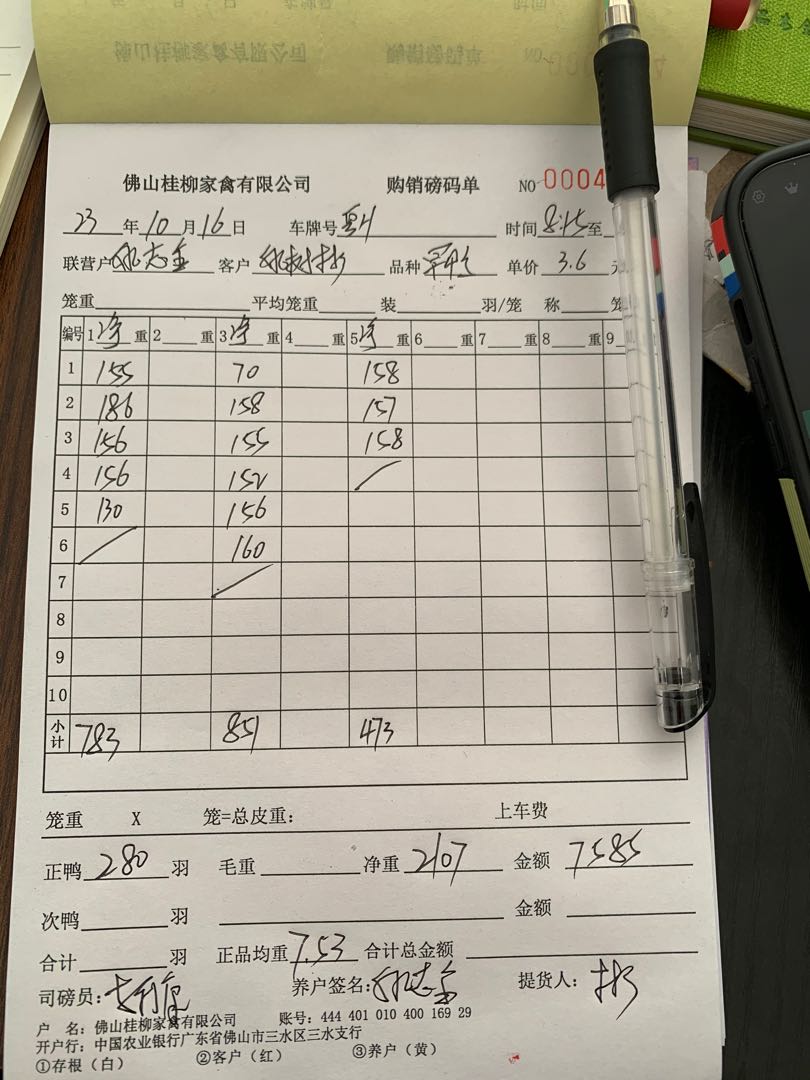 佛山桂柳家禽有限公司 购销磅码单 NO 0004
23 年 10 月 16 日 车牌号 时间 8:15 至
联营户 志 客户 品种 单价 3.6 元
笼重 平均笼重 装 羽/笼 称 笼
编号 1 净 重 2 重 3 净 重 4 重 5 净 重 6 重 7 重 8 重 9
1 155 70 158
2 186 158 157
3 156 155 158
4 156 152
5 130 156
6 160
7
8
9
10
小计 783 851 473
笼重 X 笼=总皮重: 上车费
正鸭 280 羽 毛重 净重 2107 金额 7585
次鸭 羽 金额
合计 羽 正品均重 7.53 合计总金额
司磅员: 养户签名: 志 提货人:
户 名: 佛山桂柳家禽有限公司 账号: 444 401 010 400 169 29
开户行: 中国农业银行广东省佛山市三水区三水支行
①存根(白) ②客户(红) ③养户(黄)